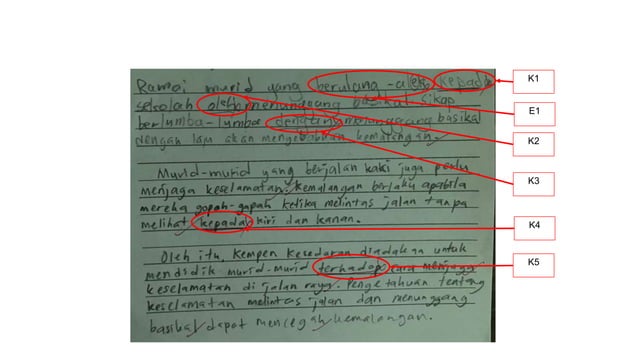 Ramai murid yang berulang-alek kepada
sekolah oleh menunggang basikal. Sikap
berlumba-lumba dengan menunggang basikal
dengan laju akan menyebabkan kemalangan.
Murid-murid yang berjalan kaki juga perlu
menjaga keselamatan. Kemalangan berlaku apabila
mereka gopah-gapah ketika melintas jalan tanpa
melihat kepada kiri dan kanan.
Oleh itu, Kempen Kesedaran diadakan untuk
mendidik murid-murid terhadap cara menjaga
keselamatan di jalan raya. Pengetahuan tentang
keselamatan melintas jalan dan menunggang
basikal dapat mencegah kemalangan.
K1
E1
K2
K3
K4
K5